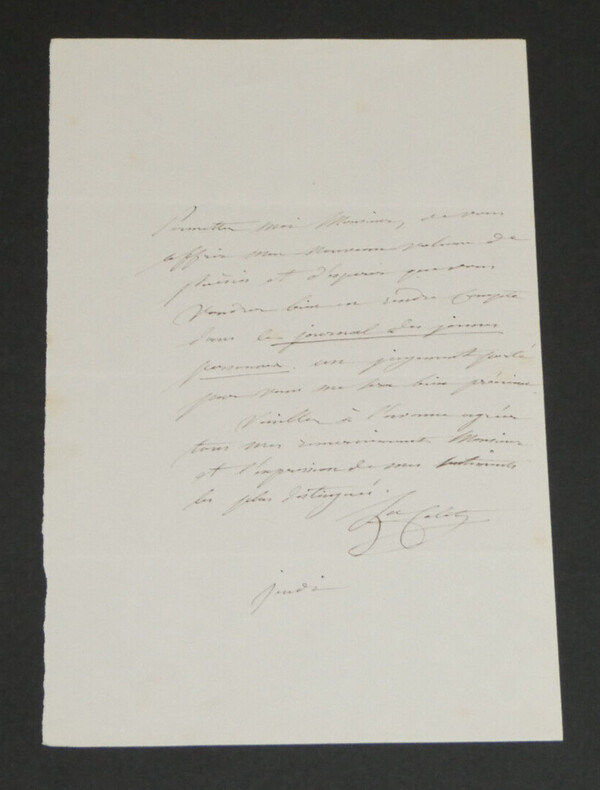 Permettez moi Monsieur, de vous
offrir mon nouveau volume de
poésies et d'espérer que vous
voudrez bien en rendre compte
dans le journal des jeunes
personnes. un jugement porté
par vous me sera bien précieux.
Veuillez à l'avance agréer
tous mes remerciements Monsieur
et l'expression de mes sentiments
les plus distingués.
Colet
jeudi